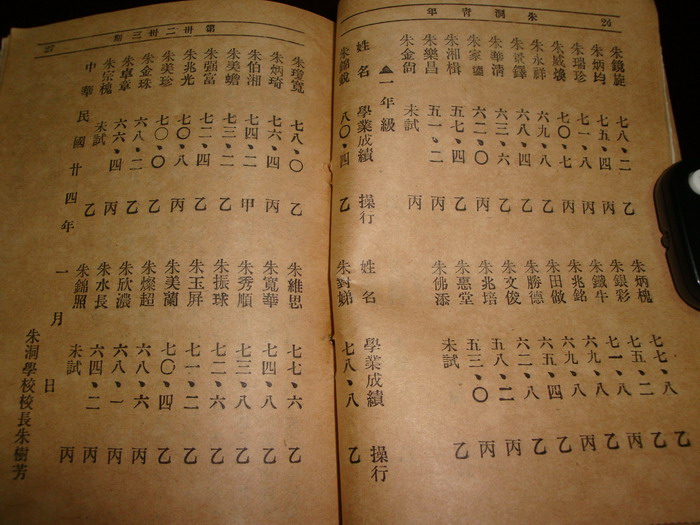 24 朱洞青年
朱鏡旋 七八、二 乙 朱炳槐 七七、八 乙
朱炳均 七五、四 丙 朱銀彩 七五、二 乙
朱瑞珍 七一、八 乙 朱鐵牛 七一、八 乙
朱威煥 七〇、七 乙 朱兆銘 六九、八 乙
朱永祥 六九、八 乙 朱田倣 六九、八 乙
朱景鐸 六八、四 乙 朱勝德 六五、四 丙
朱華清 六三、六 乙 朱文俊 六二、八 乙
朱家 六二、〇 丙 朱兆培 五八、二 丙
朱湘楫 五七、四 丙 朱惠堂 五三、〇 丙
朱樂昌 五一、二 丙 朱佛添 未試 乙
朱金尙 未試 丙
▲一年級
姓名 學業成績 操行 姓名 學業成績 操行
朱錦銳 八〇、四 乙 朱 娣 七八、八 乙
第卅二卅三期 25
朱瓊寬 七八、〇 乙 朱維思 七七、六 乙
朱炳琦 七六、四 丙 朱寬華 七四、八 乙
朱伯湘 七四、二 甲 朱秀順 七三、八 乙
朱美蟾 七三、二 乙 朱振球 七二、六 丙
朱强富 七二、四 乙 朱玉屏 七一、二 乙
朱兆光 七〇、八 丙 朱美蘭 七〇、四 乙
朱美珍 七〇、〇 乙 朱燦超 六八、六 丙
朱金珠 六八、二 乙 朱欣濃 六八、一 丙
朱卓章 六六、四 乙 朱水長 六四、二 丙
朱宗槐 未試 乙 朱錦照 未試 丙
中華民國廿四年一月 日
朱洞學校校長朱樹芳